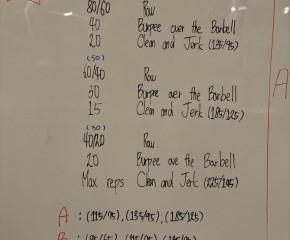 80/60 Row
40 Burpee over the Barbell
20 Clean and Jerk (135/95)
(50)
60/40 Row
30 Burpee over the Barbell
15 Clean and Jerk (185/125)
(30)
40/20 Row
20 Burpee ove the Barbell
Max reps Clean and Jerk (225/145)
A
A : (115/75), (135/95), (185/125)
B :